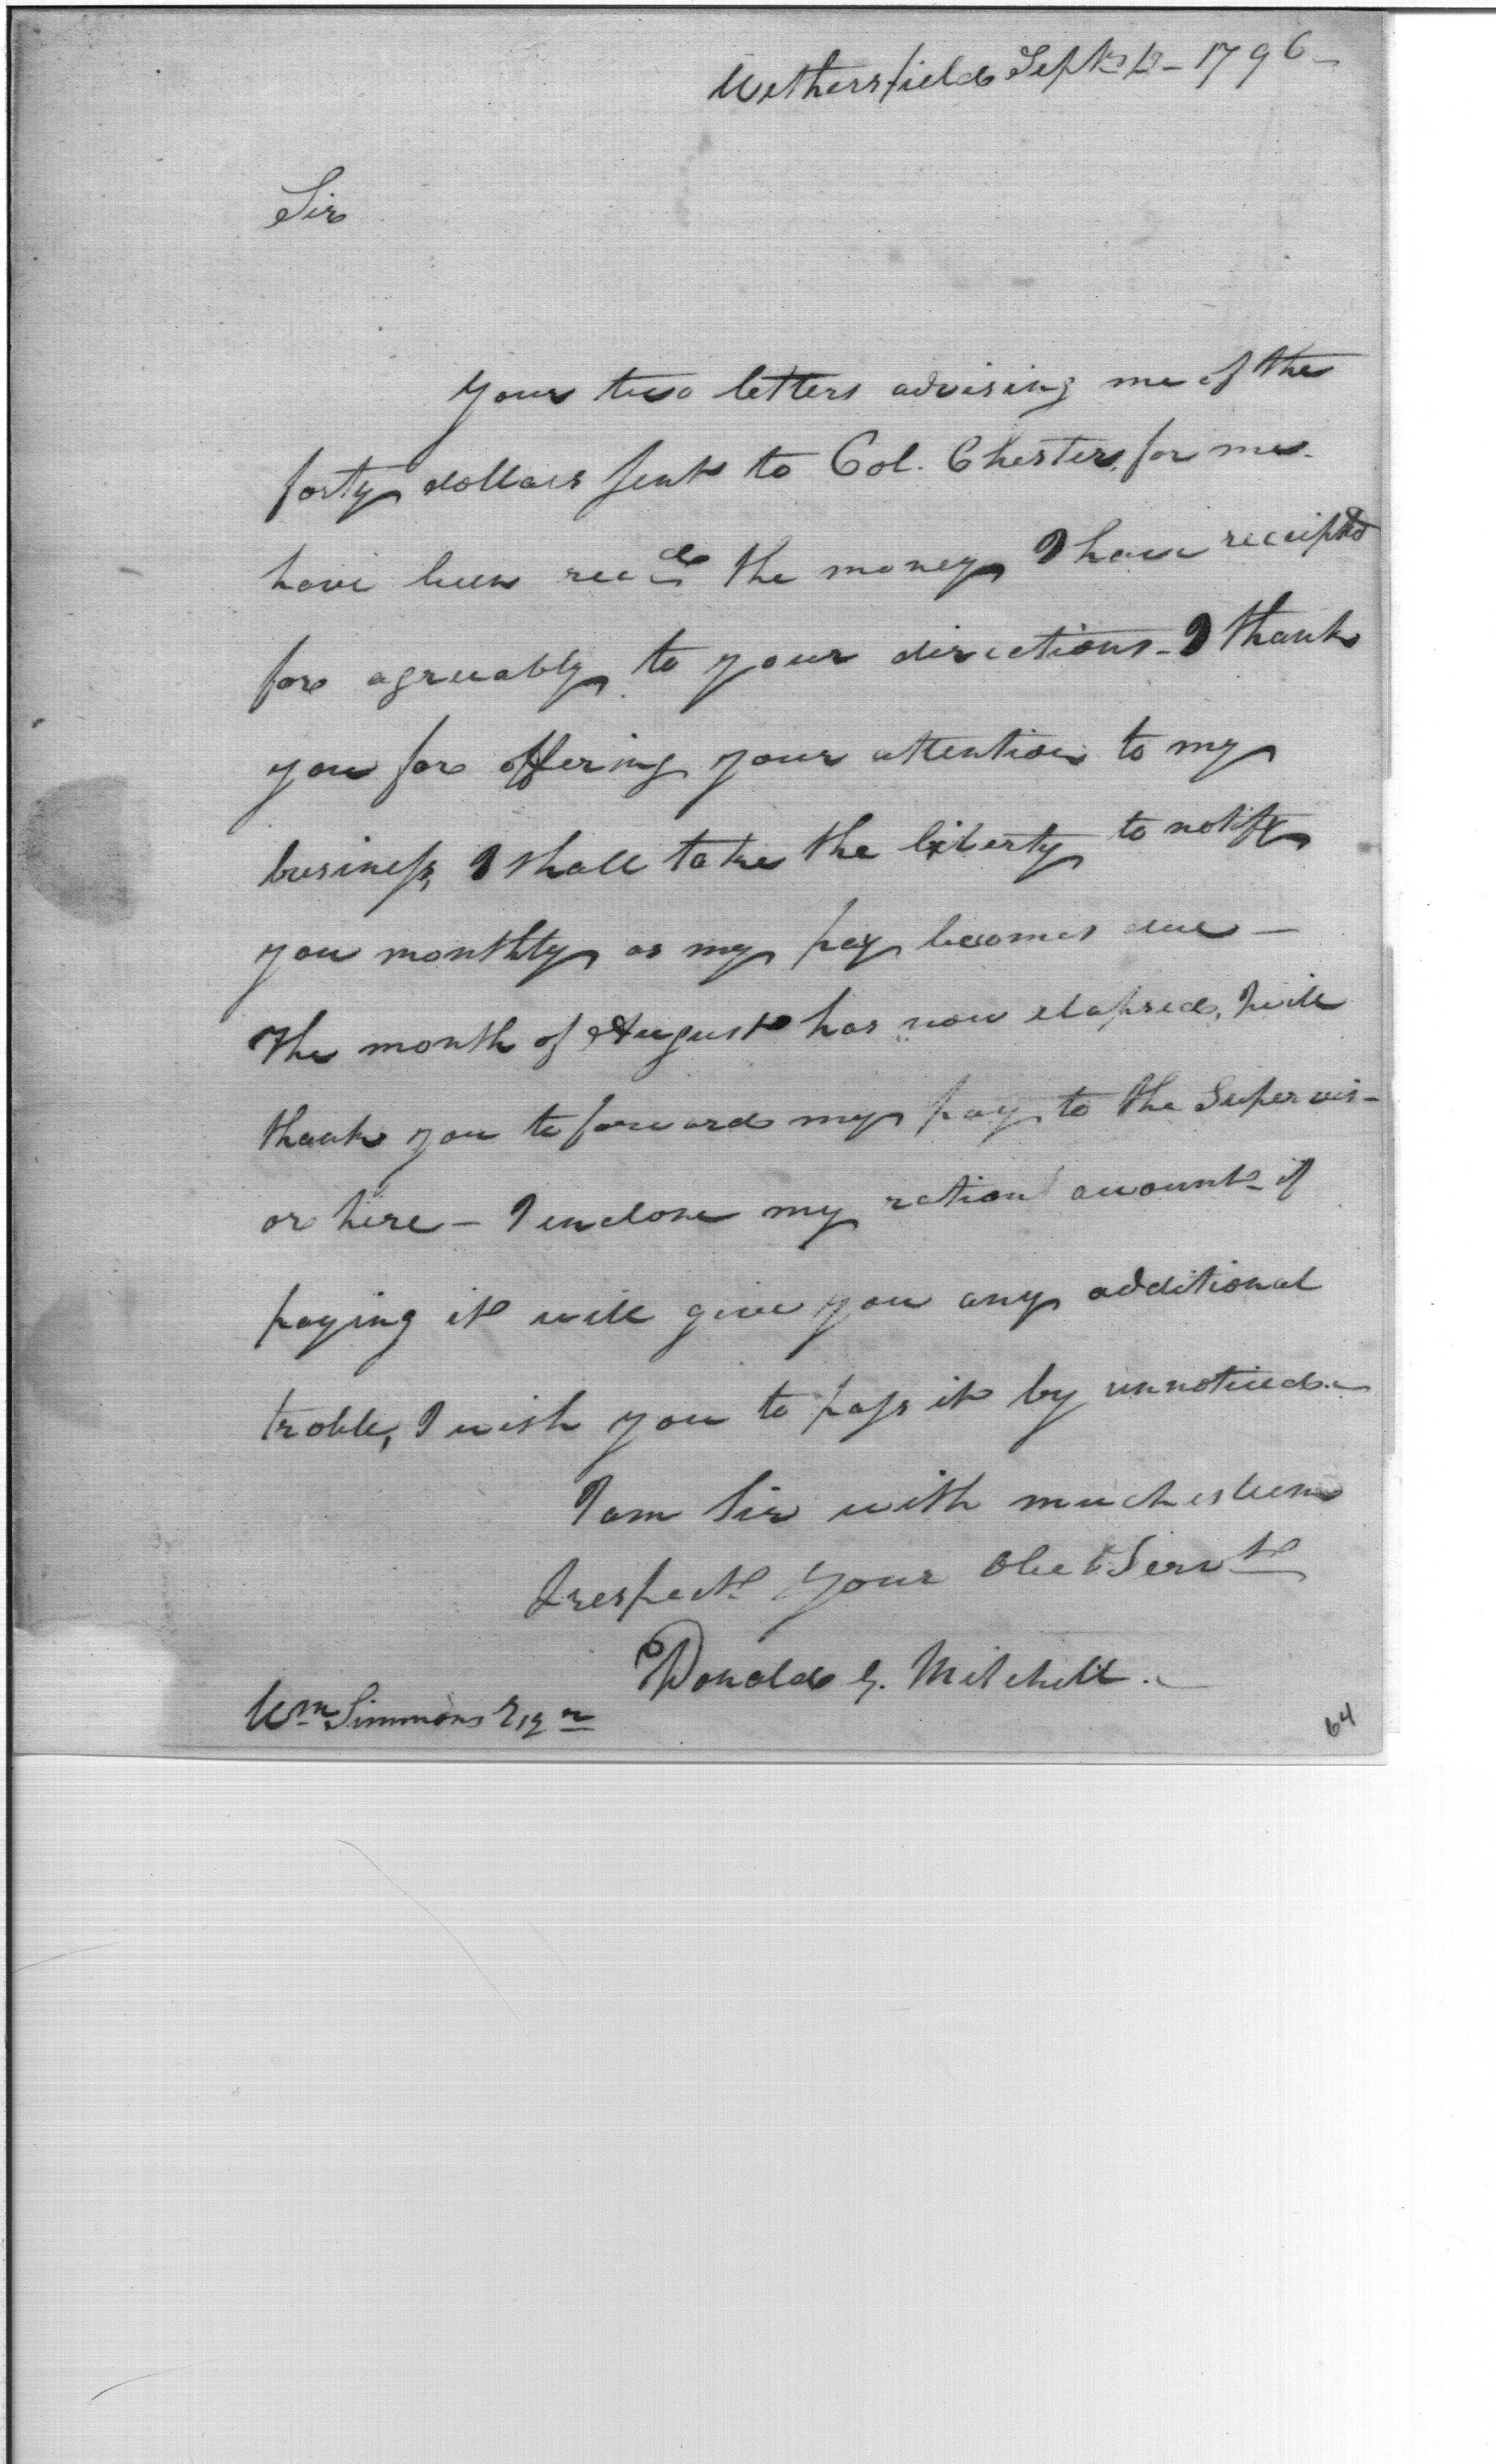 Wethersfield Sept. 12 - 1796 -
Sir
Your two letters advising me of the
forty dollars sent to Col. Chester, for me.
have been recd the money I have receipted
for agreeably to your directions - I thank
you for offering your attention to my
business, I shall take the liberty to notify
you monthly as my pay becomes due -
The month of August has now elapsed, I will
thank you to forward my pay to the Supervis-
or here - I enclose my ration account - if
paying it will give you any additional
troble, I wish you to pass it by unnoticed. -
I am Sir with much esteem
& respect your Obet Servt
Donald G. Mitchell. -
Wm Simmons Esqr
64